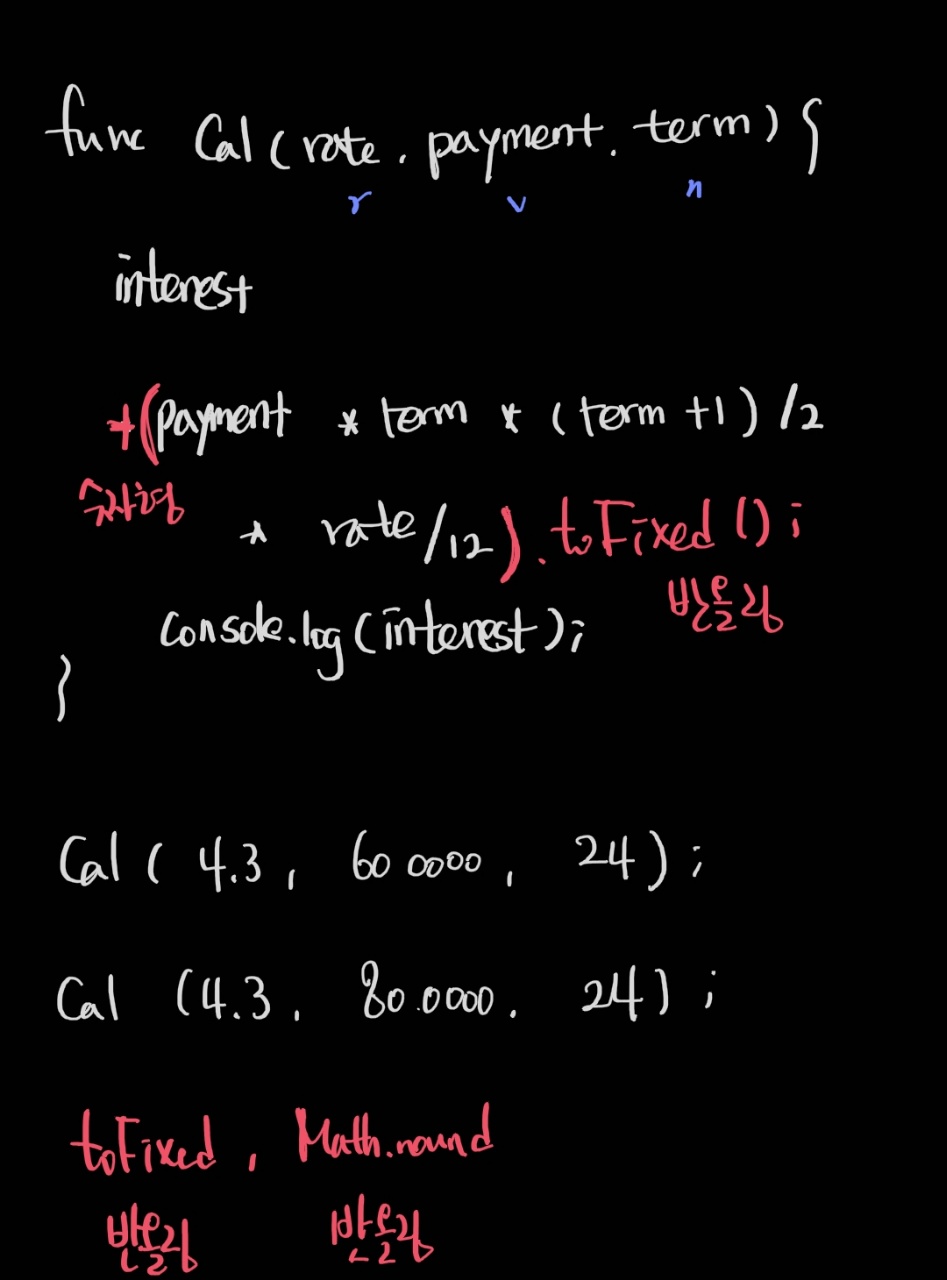 func Cal ( rate , payment , term ) {
r v n
interest
+(payment * term * ( term +1 ) /2
숫자형
* rate/12).toFixed();
반올림
console.log(interest);
}
Cal ( 4.3 , 60 0000 , 24 ) ;
Cal (4.3 , 80.0000 , 24 ) ;
toFixed , Math.round
반올림 반올림